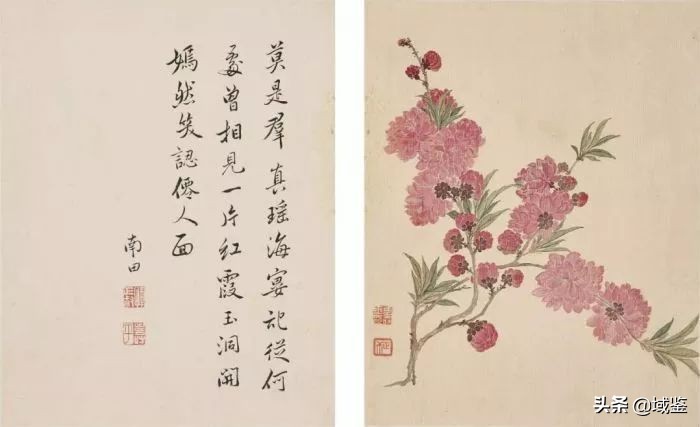 莫是羣真瑶海宴記從何
處曾相見一片紅霞玉洞開
嫣然笑認僊人面
南田
头条 @域鉴